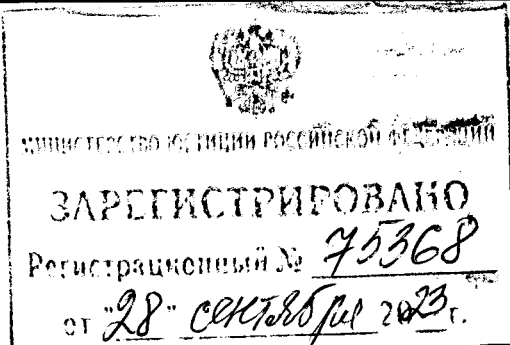 МИНИСТЕРСТВО ЮСТИЦИИ РОССИЙСКОЙ ФЕДЕРАЦИИ
ЗАРЕГИСТРИРОВАНО
Регистрационный № 75368
от "28" сентября 2023 г.